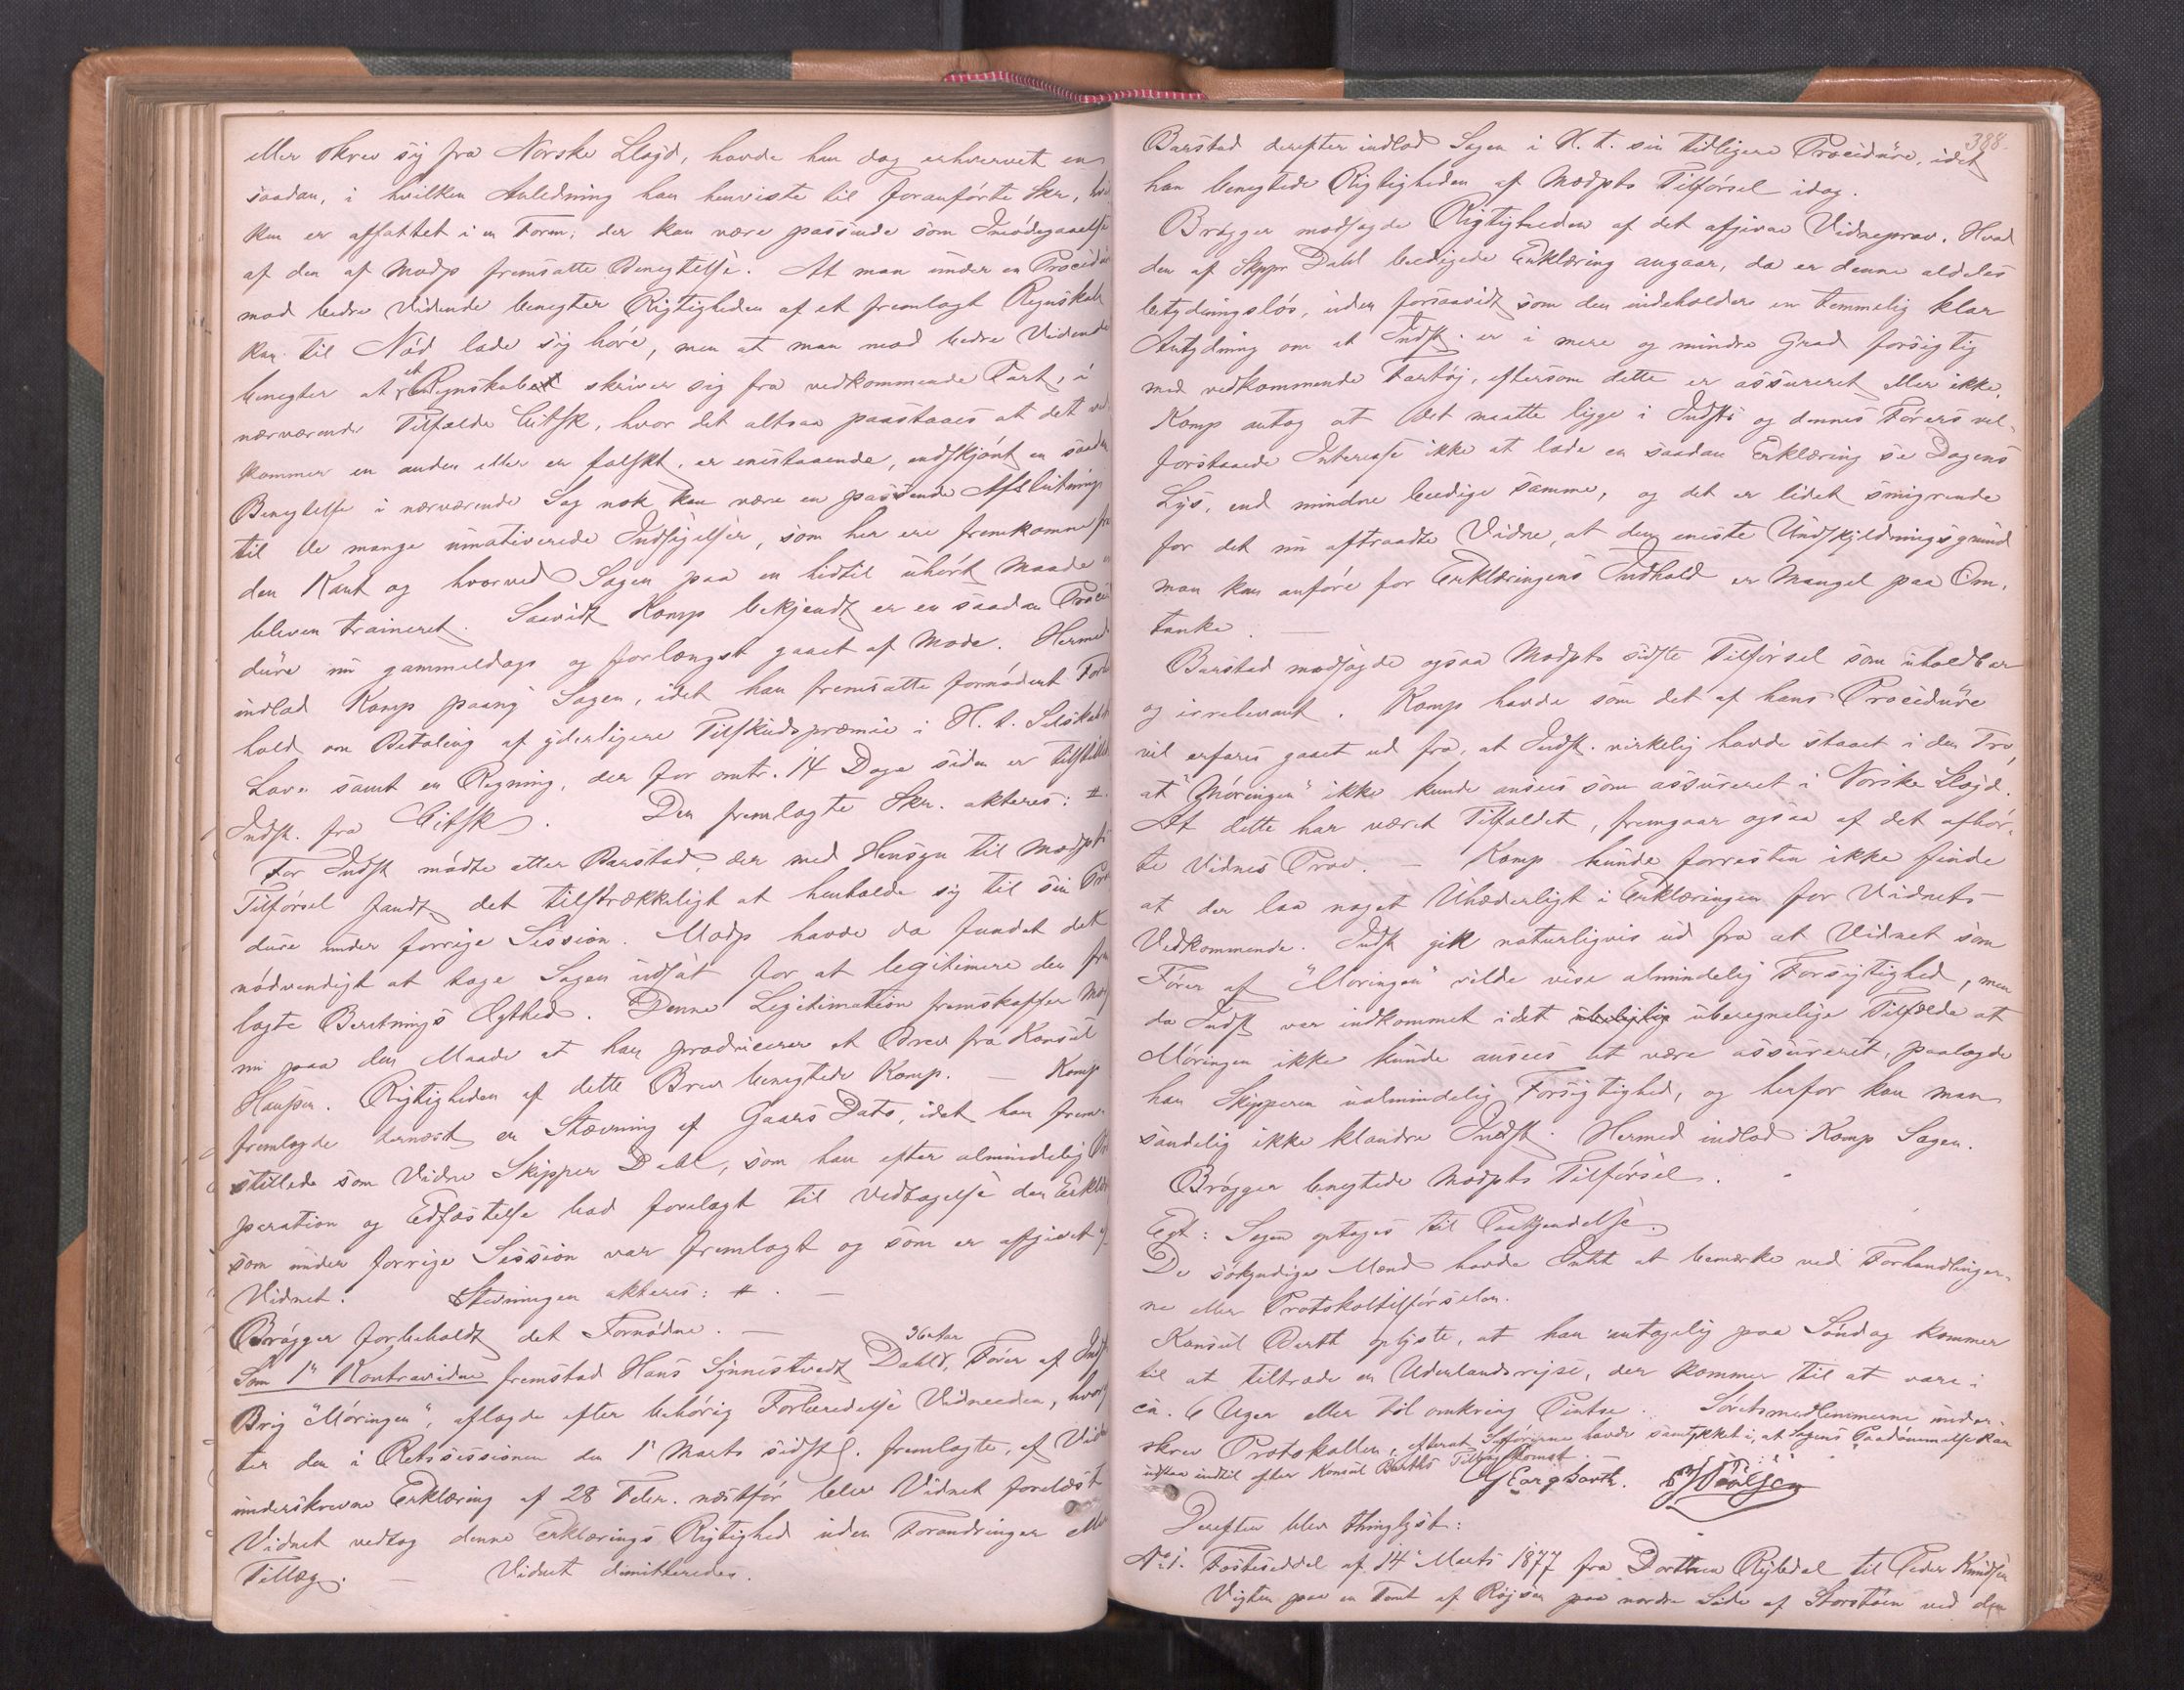 eller skrev sig fra Norske Lloyd, havde han dog erhvervet en
saadan, i hvilken Anledning han henviste til foranførte Skr, hvil
ken er affattet i en Form, der kan være passende som Imødegaaelse
af den af Modp fremsatte Benegtelse. At man under en Procedu
mod bedre Vidende benegter Rigtigheden af et fremlagt Regnskab
kan til Nød lade sig høre, men at man mod bedre Vidende
benegter at et Regnskab skriver sig fra vedkommende Part, i
nærværende Tilfælde Citsk, hvor det altsaa paastaaes at det ved
kommer en anden eller er falskt, er enestaaende, endskjønt en saadan
Benegtelse i nærværende Sag nok kan være en passende Afslutning
til de mange umotiverede Indsigelser, som her ere fremkomne fra
den Kant og hvorved Sagen paa en hidtil uhørt Maade er
bleven traineret. Saavidt Komp bekjendt er en saadan Proce
dure nu gammeldags og forlængst gaaet af Mode. Hermed
indlod Komp paany Sagen, idet han fremsatte fornødent Forbe
hold om Betaling af yderligere Tilskudspræmie i H. t. Selskabets
Love samt en Regning, der for omtr. 14 Dage siden er tilstillet
Indst. fra Citsk. Den fremlagte Skr. akteres: #.
For Indst mødte atter Barstad, der med Hensyn til Modpts
Tilførsel fandt det tilstrækkeligt at henholde sig til sin Proce
dure under forrige Session. Modp havde da fundet det
nødvendigt at tage Sagen udsat for at legitimere den frem
lagte Beretnings Ægthed. Denne Legitimation fremskaffer Modp
nu paa den Maade at han producerer et Brev fra Konsul
Hansen. Rigtigheden af dette Brev benegtede Komp. — Komp
fremlagde dernæst en Stævning af Gaars Dato, idet han frem-
stillede som Vidne Skipper Dahl, som han efter almindelig Præ
paration og Edfæstelse bad forelagt til Vedtagelse den Erklæring
som under forrige Session var fremlagt og som er afgivet af
Vidnet. Stevningen akteres: #. —
Brøgger forbeholdt det Fornødne. —
Som 1ste Kontravidne fremstod Hans Synnestvedt Dahl, 36 Aar, Fører af Indst
Brig "Møringen", aflagde efter behørig Forberedelse Vidneeden, hvoref
ter den i Retssessionen den 1ste Marts sidstl. fremlagte, af Vidnet
underskrevne Erklæring af 28 Febr. næstfør blev Vidnet forelæst
Vidnet vedtog denne Erklærings Rigtighed uden Forandringer eller
Tillæg. — Vidnet dimitteredes.
388.
Barstad derefter indlod Sagen i H. t. sin tidligere Procedure, idet
han benegtede Rigtigheden af Modpts Tilførsel idag.
Brøgger modsagde Rigtigheden af det afgivne Vidneprov. Hvad
den af Skpr Dahl beedigede Erklæring angaar, da er denne aldeles
betydningsløs, uden forsaavidt som den indeholder en temmelig klar
Antydning om at Indst. er i mere og mindre Grad forsigtig
med vedkommende Fartøj, eftersom dette er assureret eller ikke.
Komp antog at det maatte ligge i Indsts og dennes Førers vel-
forstaaede Interesse ikke at lade en saadan Erklæring se Dagens
Lys, end mindre beedige samme, og det er lidet smigrende
for det nu aftraadte Vidne, at den eneste Undskyldningsgrund
man kan anføre for Erklæringens Indhold er Mangel paa Om-
tanke. —
Barstad modsagde ogsaa Modpts sidste Tilførsel som uholdbar
og irrelevant. Komp havde som det af hans Procedure
vil erfares gaaet ud fra, at Indst. virkelig havde staaet i den Tro,
at "Møringen" ikke kunde ansees som assureret i Norske Lloyd.
At dette har været Tilfældet, fremgaar ogsaa af det afhør-
te Vidnes Prov. — Komp kunde forresten ikke finde
at der laa noget Uhæderligt i Erklæringen for Vidnets
Vedkommende. Indst gik naturligvis ud fra at Vidnet som
Fører af "Møringen" vilde vise almindelig Forsigtighed, men
da Indst var indkommet i det uberegnelige Tilfælde at
Møringen ikke kunde ansees at være assureret, paalagde
han Skipperen ualmindelig Forsigtighed, og herfor kan man
sandelig ikke klandre Indst. Hermed indlod Komp Sagen.
Brøgger benegtede Modpts Tilførsel.
Egt: Sagen optages til Paakjendelse.
De søkyndige Mænd havde Intet at bemærke ved Forhandlinger-
ne eller Protokoltilførselen.
Konsul Barth oplyste, at han antagelig paa Søndag kommer
til at tiltræde en Udenlandsrejse, der kommer til at vare i
ca. 6 Uger eller til omkring Pintse. Søretsmedlemmerne under-
skrev Protokollen, efterat Sagførerne havde samtykket i, at Sagens Paadømmelse kan
udstaa indtil efter Konsul Barths Tilbagekomst.
Georg Barth.
Derefter blev thinglyst:
No 1. Festeseddel af 14de Marts 1877 fra Dorthea Rybdal til Peder Knudsen
Vigten paa en Tomt af Røysen paa nordre Side af Storstøen ved den